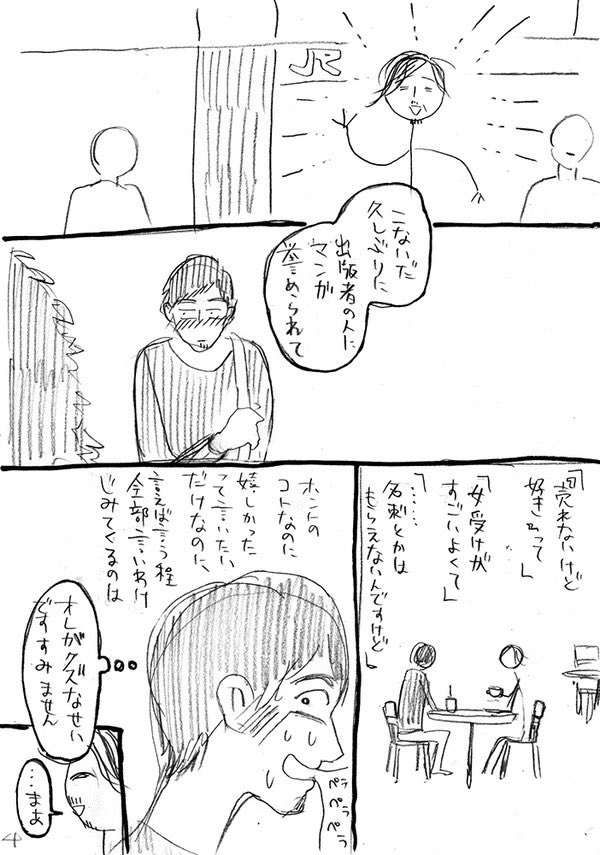 JR
こないだ
久しぶりに
出版者の人に
マンガ
誉められて
売れないけど
「女受けが
すごいよくて」
「……
名刺とかは
もらえないんですけど」
ホントの
コトなのに
嬉しかった
って言いたい
だけなのに、
言えば言う程
全部言いわけ
じみてくるのは
オレがクズなせい
ですすみません
ペラ
ペラ
ペラ
…まあ
4